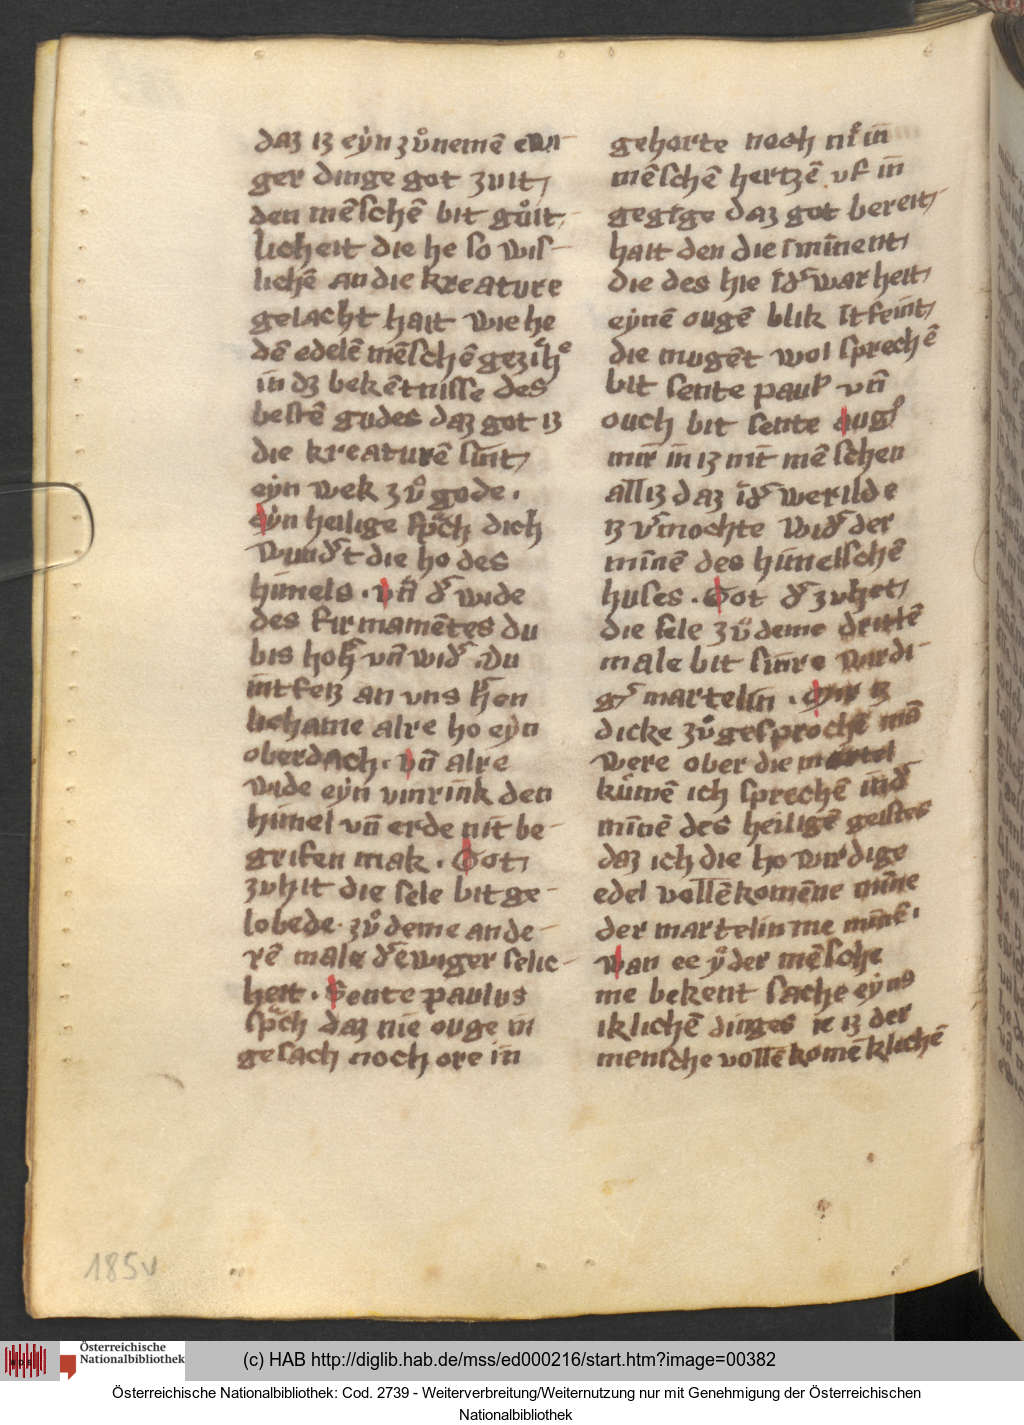 daz iz eyn zuͦnemē ewi
ger dinge got zuit
den mēschē bit guͦit
licheit die he so wis
lichē an die kreature
gelacht hait wie he
dē edelē mēschē
in dz bekētnisse des
bestē gudes daz got iz
die kreaturē sint
eyn wek zuͦ gode .
eyn heilige spͣch dich
wundˢt die ho des
himels . vn̄ dˢ wide
des firmamētes du
bis hoh vn̄ widˢ . Du
intfeiz an vns hˢen
lichame alre ho eyn
oberdach . vn̄ alre
wide eyn vmrink den
himel vn̄ erde nit be
grifen mak . Got
zuhit die sele bit ge
lobede . zuͦ deme ande
rē male dˢ ewiger selic
heit . Sente paulus
spͣch daz nie ouge in
gesach noch ore in
gehorte noch nͥ in
mēschē hertzē . vf in
gegīge daz got bereit
hait den die sminent
die des hie īdˢ warheit
eynē ougē blik ītfeint
die mugēt wol sprechē
bit sente paulˀ vn̄
ouch bit sente augˀ
mir in iz nit mēschen
alliz daz īdˢ werilde
iz vˢmochte widˢ der
mīnē des himelschē
huses . Got dˢ zuhet
die sele zuͦ deme drittē
male bit sinre wirdi
gˢ martelin . Mir iz
dicke zuͦ gesprochē mā
were ober die martel
kumē ich sprechē indˢ
mīnē des heiligē geistes
daz ich die ho wirdige
edel vollēkomēne mīne
der martelin me
wan ee yͤder mēsche
me bekent sache eyns
iklichē dinges ie iz der
mensche vollēkomēklichē
185v
(c) HAB http://diglib.hab.de/mss/ed000216/start.htm?image=00382
Österreichische
Nationalbibliothek
Österreichische Nationalbibliothek: Cod. 2739 - Weiterverbreitung/Weiternutzung nur mit Genehmigung der Österreichischen
Nationalbibliothek